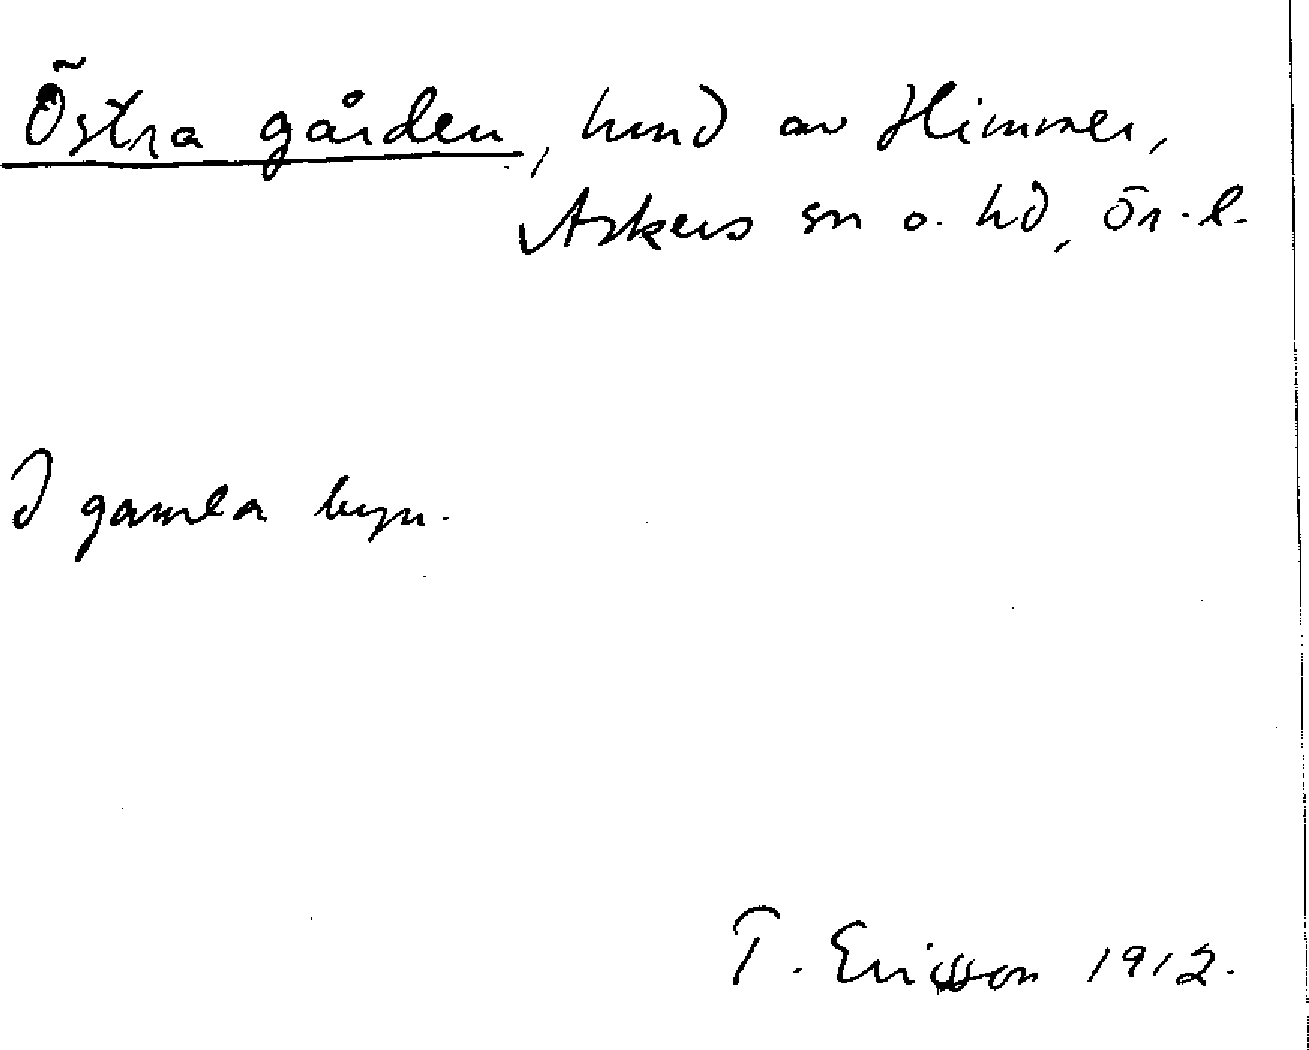 Östra gården, hmd av Himmer,
Askers sn o. hd, Ör. l.
I gamla byn.
T. Ericsson 1912.